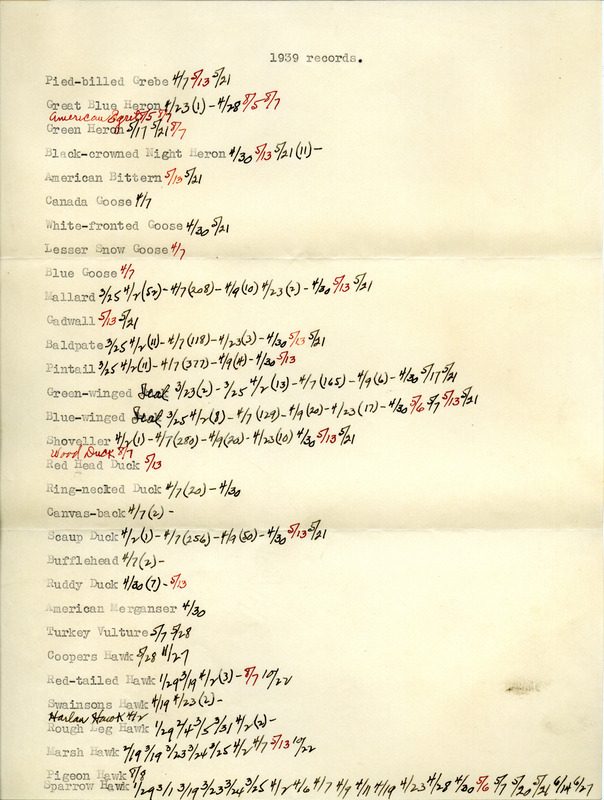 1939 records.
Pied-billed Grebe 4/7 5/13 5/21
Great Blue Heron 4/23(1)- 4/28 5/5 5/7
American Egret 5/5 5/7
Green Heron 5/17 5/21 5/7
Black-crowned Night Heron 4/30 5/13 5/21(11)-
American Bittern 5/13 5/21
Canada Goose 4/7
White-fronted Goose 4/30 5/21
Lesser Snow Goose 4/7
Blue Goose 4/7
Mallard 3/25 4/2(52)- 4/7(208)- 4/9(10) 4/23(2)- 4/30 5/13 5/21
Gadwall 5/13 5/21
Baldpate 3/25 4/2(11)- 4/7(118)- 4/23(3)- 4/30 5/13 5/21
Pintail 3/25 4/2(11)- 4/7(377)- 4/9(4)- 4/30 5/13
Green-winged Teal 3/23(2)- 3/25 4/2(13)- 4/7(165)- 4/9(6)- 4/30 5/17 5/21
Blue-winged Teal 3/25 4/2(8)- 4/7(129)- 4/9(20)- 4/23(17)- 4/30 5/6 5/7 5/13 5/21
Shoveller 4/2(1)- 4/7(280)- 4/9(20)- 4/23(10) 4/30 5/13 5/21
Wood Duck 5/7
Red Head Duck 5/13
Ring-necked Duck 4/7(20)- 4/30
Canvas-back 4/7(2)-
Scaup Duck 4/2(1)- 4/7(256)- 4/9(50)- 4/30 5/13 5/21
Bufflehead 4/7(2)-
Ruddy Duck 4/30(7)- 5/13
American Merganser 4/30
Turkey Vulture 5/7 5/28
Coopers Hawk 5/28 11/27
Red-tailed Hawk 1/29 3/19 4/2(3)- 5/7 10/22
Swainsons Hawk 4/19 4/23(2)-
Harlan Hawk 4/2
Rough Leg Hawk 1/29 2/4 3/5 3/31 4/2(2)-
Marsh Hawk 2/19 3/19 3/23 3/24 3/25 4/2 4/7 5/13 10/22
Pigeon Hawk 5/8
Sparrow Hawk 1/29 3/1 3/19 3/23 3/24 3/25 4/2 4/6 4/7 4/9 4/11 4/19 4/23 4/28 4/30 5/6 5/7 5/20 5/21 6/14 6/27